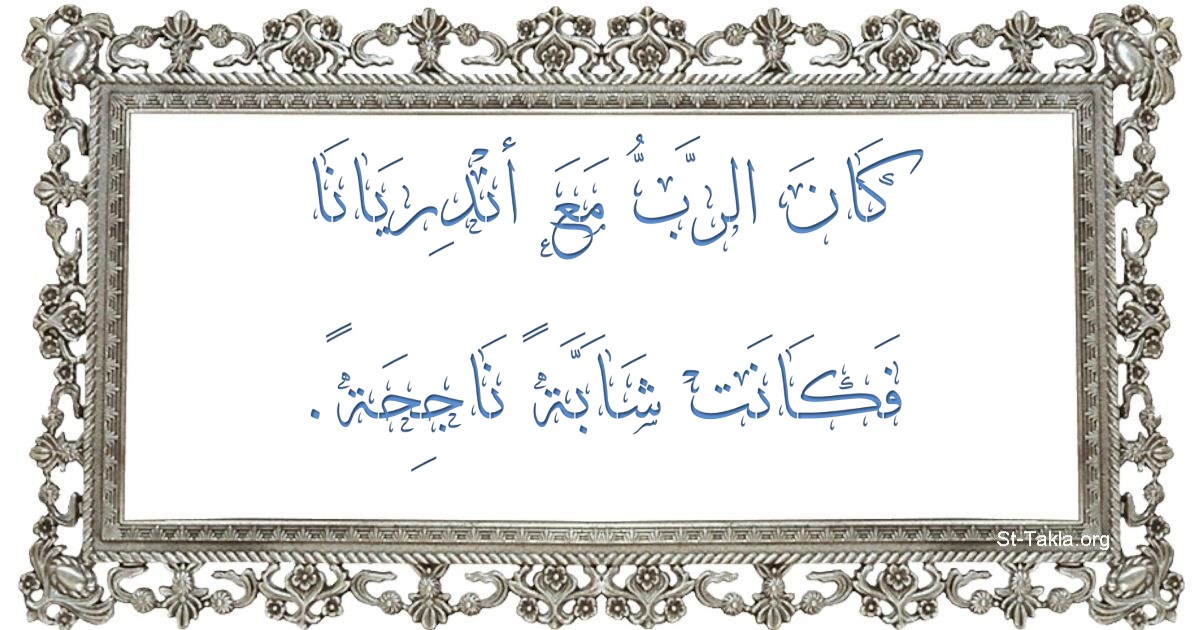 كَانَ الرَّبُّ مَعَ أنْدِريَانَا
فَكَانَتْ شَابَّةً نَاجِحَةً.
St-Takla.org